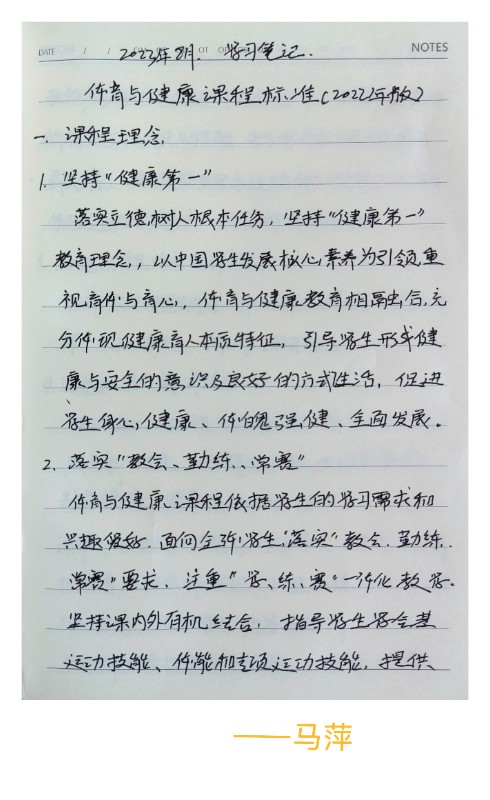 DATE / /
NOTES
2023年8月. 学习笔记.
体育与健康课程标准(2022年版)
一. 课程理念.
1. 坚持“健康第一”
落实立德树人根本任务, 坚持“健康第一”
教育理念, 以中国学生发展核心素养为引领, 重
视育体与育心, 体育与健康教育相融合, 充
分体现健康育人本质特征, 引导学生形成健
康与安全的意识及良好的方式生活, 促进
学生身心健康、体魄强健、全面发展。
2. 落实“教会、勤练、常赛”
体育与健康课程依据学生的学习需求和
兴趣爱好. 面向全体学生, 落实“教会. 勤练.
常赛”要求, 注重“学、练、赛”一体化教学.
坚持课内外有机结合, 指导学生学会基
运动技能、体能和专项运动技能, 提供
——马萍